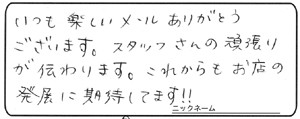 いつも楽しいメールありがとう
ございます。スタッフさんの頑張り
が伝わります。これからもお店の
発展に期待してます!!
ニックネーム